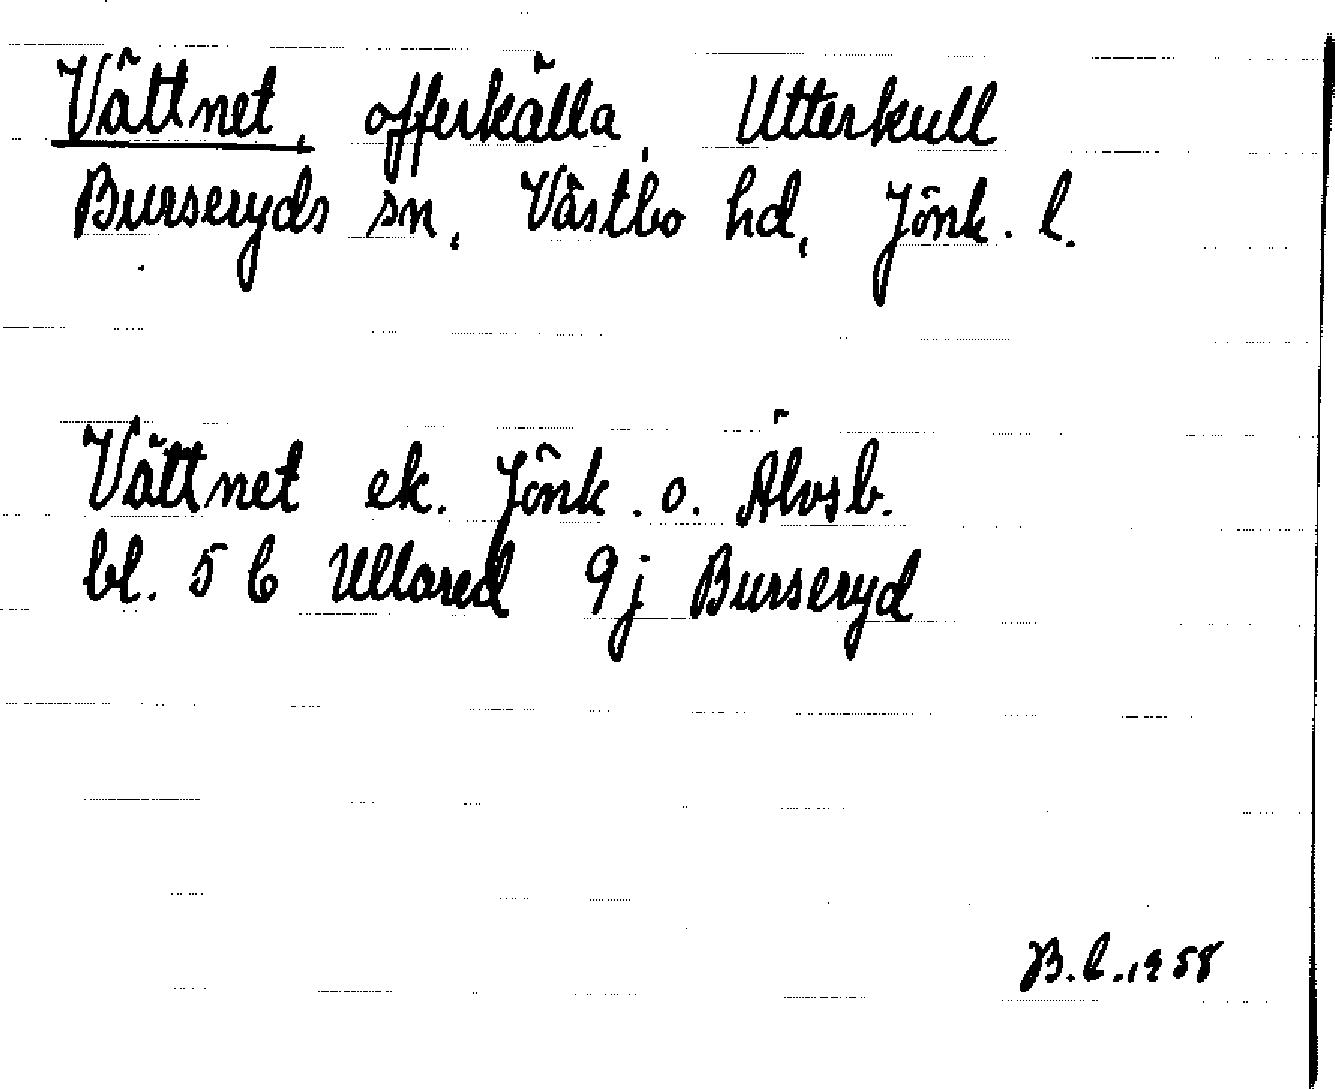 Vättnet, offerkälla, Utterkull
Burseryds sn, Västbo hd, Jönk. l.
Vättnet ek. Jönk. o. Älvsb.
bl. 5 C Ullared 9 j Burseryd
B.L. 1958